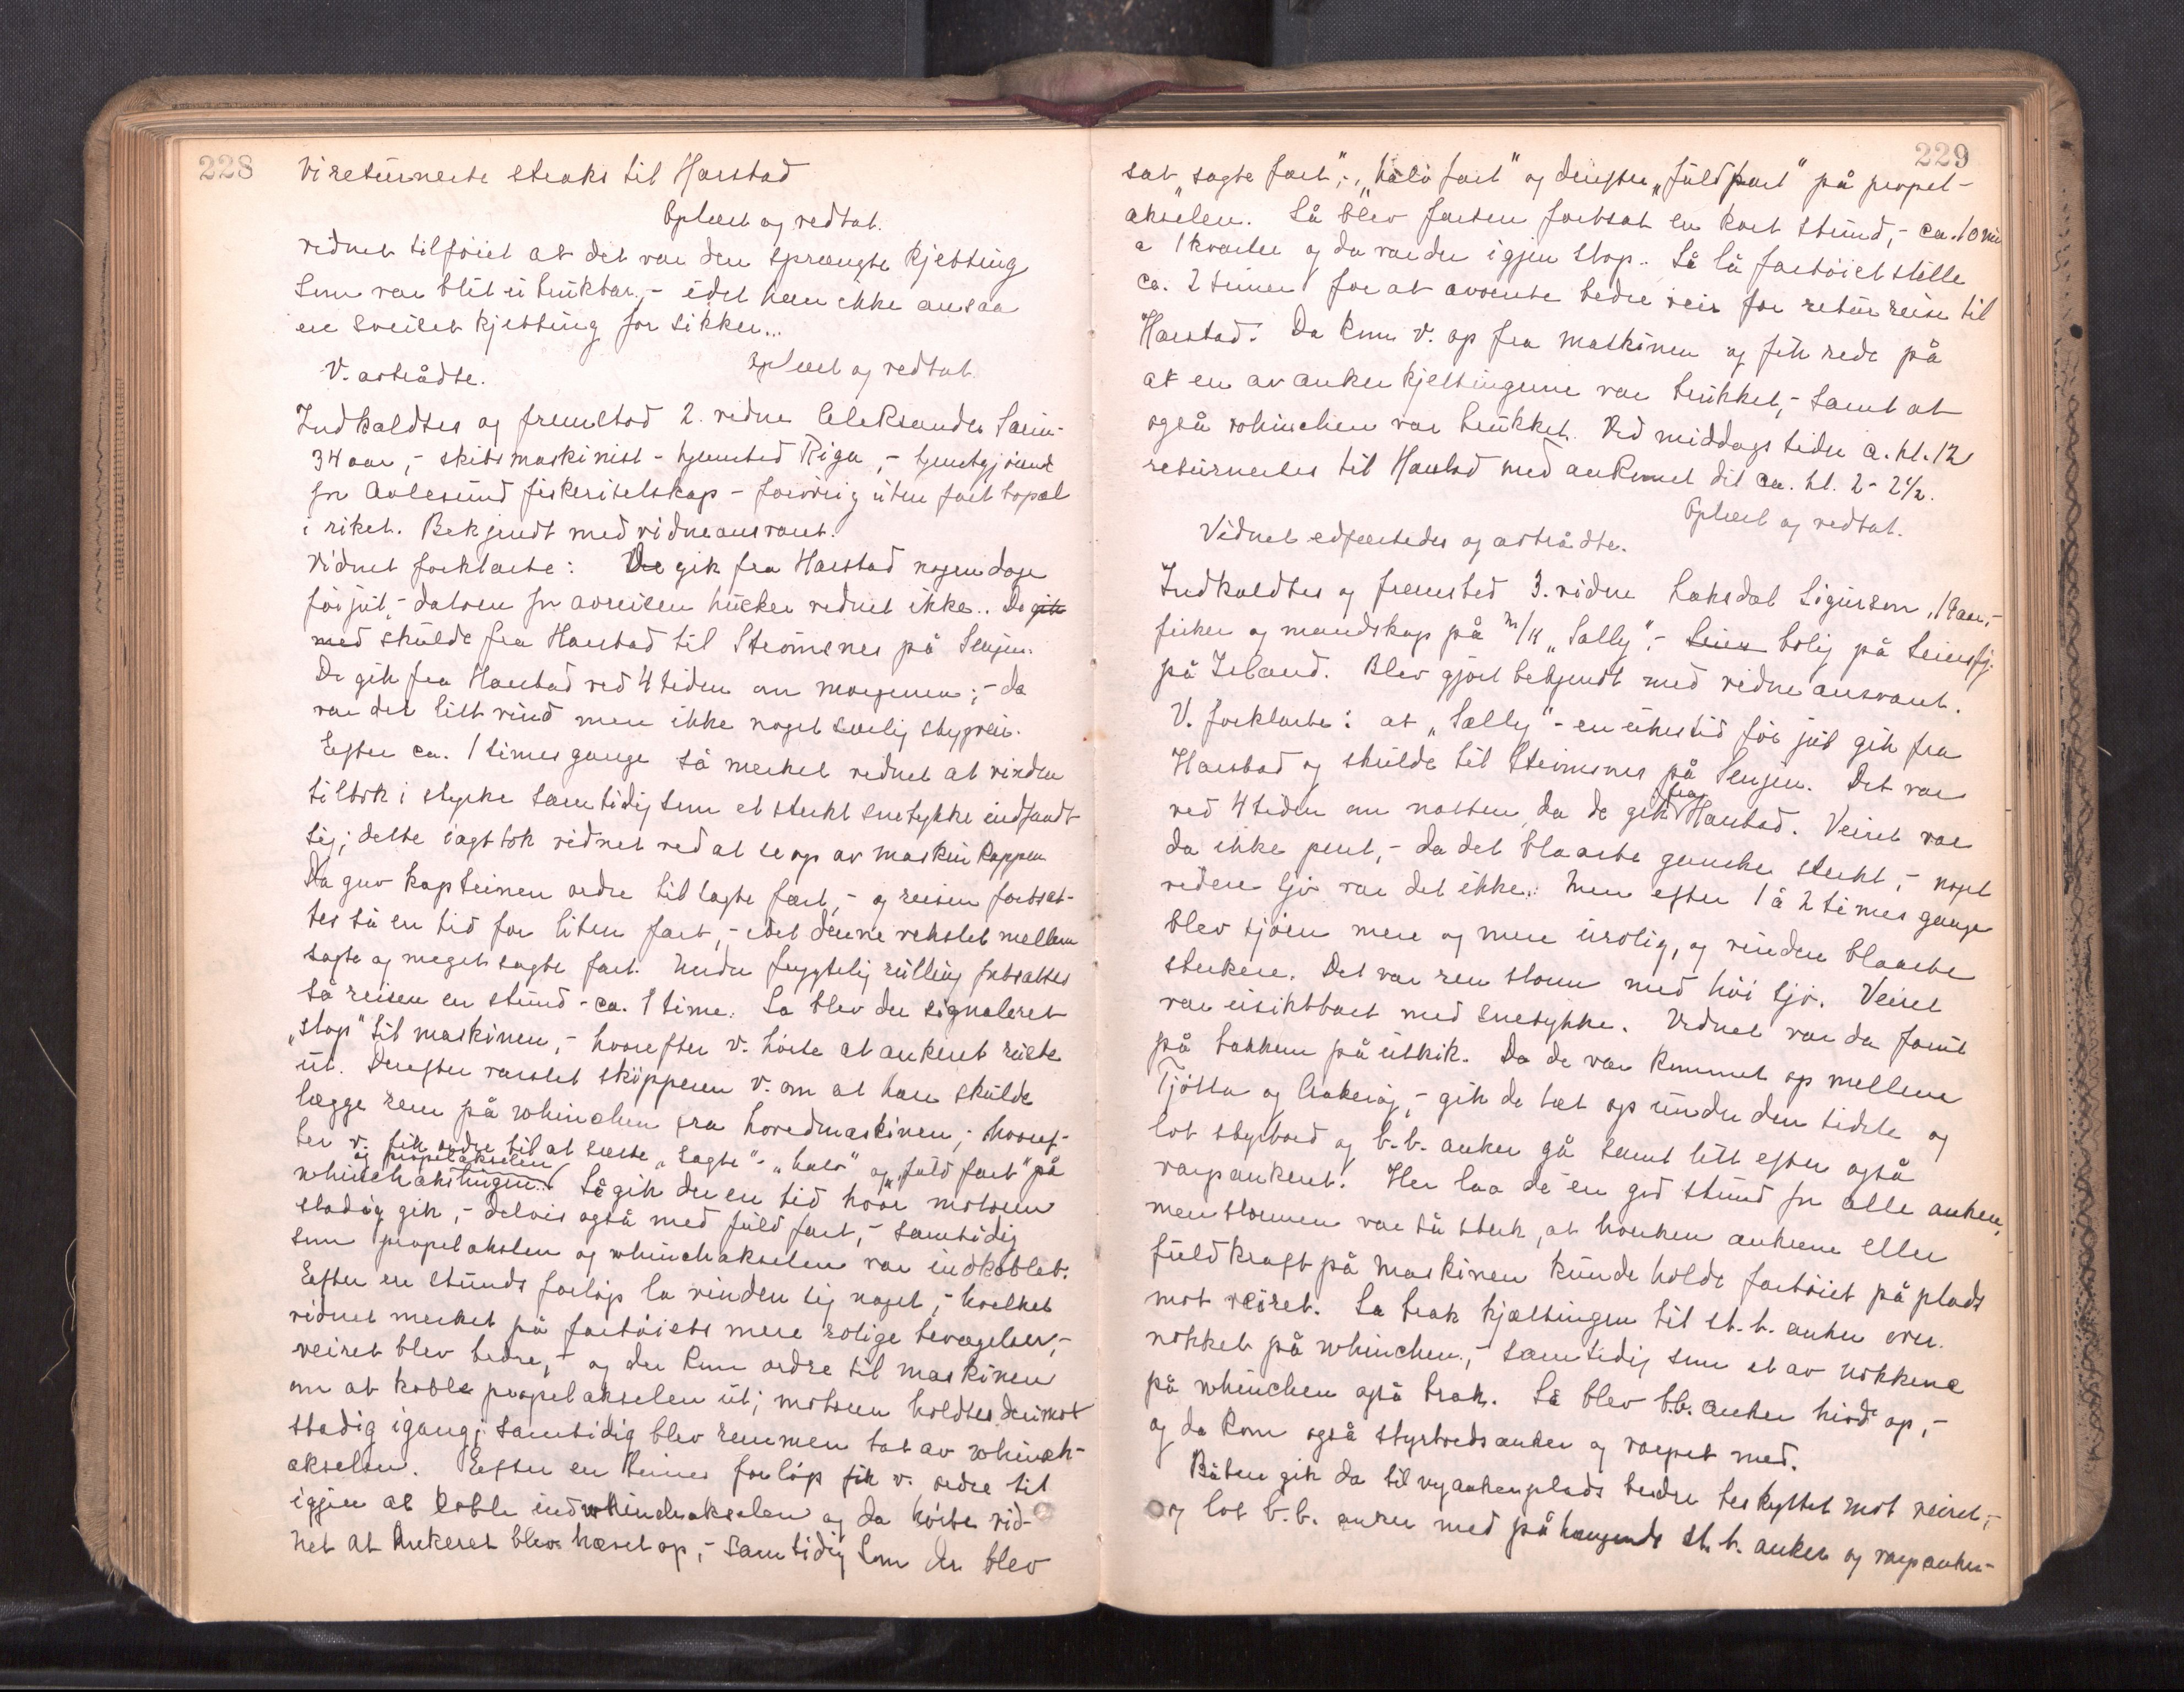 228
Vi returnerte straks til Harstad
Oplæst og vedtat.
vidnet tilføiet at det var den sprængte kjetting
som var blit ubrukbar, - idet han ikke ansaa
en sveiset kjetting for sikker...
V. aftrådte. Oplæst og vedtat.
Indkaldtes og fremstod 2. vidne Aleksander
34 aar, - skibsmaskinist - hjemsted Riga, - tjenestgjørende
for Aalesund fiskeriselskap - forøvrig uten fast bopæl
i riket. Bekjendt med vidneansvaret.
Vidnet forklarte: De gik fra Harstad nogen dage
før jul, - datoen for avreisen husker vidnet ikke.. De gik
med skulde fra Harstad til Strömsnes på Senjen.
De gik fra Harstad ved 4 tiden om morgenen; - da
var det litt vind men ikke noget særlig stygveir.
Efter ca. 1 times gange så merket vidnet at vinden
tiltok i styrke samtidig som et sterkt snetykke indfandt
sig; dette iagttok vidnet ved at se op av maskinkappen
Da gav kapteinen ordre til sagte fart, - og reisen fortsat-
tes så en tid for liten fart, - idet denne vekslet mellem
sagte og meget sagte fart. Under frygtelig rulling fortsattes
så reisen en stund - ca. 1 time. Så blev der signaleret
„stop" til maskinen, - hvorefter v. hörte at ankeret rüste
ut. Derefter varslet skipperen v. om at han skulde
lægge rem på whinchen fra hovedmaskinen; - hvoref-
ter v. fik ordre til at sætte „sagte" - „halv" og „fuld fart" på
og propelakselen
whinchakslingen. Så gik der en tid hvor motoren
stadig gik, - delvis også med fuld fart, - samtidig
som propelakslen og whinchakselen var indkoblet.
Efter en stunds forløp la vinden sig noget, - hvilket
vidnet merket på fartøiets mere rolige bevægelser, -
veiret blev bedre, - og der kom ordre til maskinen
om at koble propelakselen ut; motoren holdtes derimot
stadig igang; samtidig blev remmen tat av whinch-
akselen. Efter en times forløp fik v. ordre til
igjen at koble ind whinchakselen og da hørte vid-
net at ankeret blev hævet op, - samtidig som der blev
229
sat „sagte fart", - „halv fart" og derefter „fuld fart" på propel-
akselen. Så blev farten fortsat en kort stund, - ca. 10 min
a 1 kvarter og da var der igjen stop. Så lå fartøiet stille
ca. 2 timer for at avvente bedre veir for returreise til
Harstad. Da kom v. op fra maskinen og fik rede på
at en av ankerkjettingerne var brukket, - samt at
også whinchen var brukket. Ved middags tider a. kl. 12
returnertes til Harstad med ankomst dit ca. kl. 2 - 2½.
Oplæst og vedtat.
Vidnet edfæstedes og aftrådte.
Indkaldtes og fremsted 3. vidne Laksdal Sigurson, 19 aar, -
fisker og mandskap på m/k „Sally". - bolig på
på Island. Blev gjort bekjendt med vidneansvaret.
V. forklarte: at „Sally" - en ukestid før jul gik fra
Harstad og skulde til Strömsnes på Senjen. Det var
ved 4 tiden om natten da de gik fra Harstad. Veiret var
da ikke pent, - da det blaaste ganske sterkt, - noget
videre sjø var det ikke. Men efter 1 à 2 times gange
blev sjøen mere og mere urolig, og vinden blaaste
sterkere. Det var ren storm med høi sjø. Veiret
var usiktbart med snetykke. Vidnet var da forut
på bakken på utkik. Da de var kommet op mellem
Tjötta og, - gik de tæt op under den sidste og
lot styrbord og b.b. anker gå samt litt efter også
varpankeret. Her laa de en god stund for alle ankere,
men stormen var så sterk, at hverken ankrene eller
fuld kraft på maskinen kunde holde fartøiet på plads
mot veiret. Så brak kjættingen til st.b. anker over
nokket på whinchen, - samtidig som et av nokkene
på whinchen også brak. Så blev b.b. anker hivd op, -
og da kom også styrbordsanker og varpet med.
Båten gik da til ny ankerplads bedre beskyttet mot veiret, -
og lot b.b. anker med påhængende st.b. anker og varpanker-